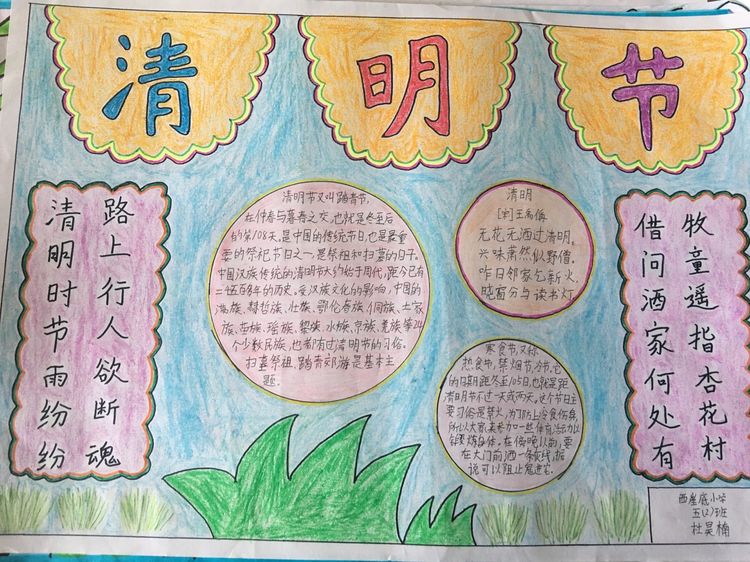 清明节
清明时节雨纷纷
路上行人欲断魂
清明节又叫踏青节,
在仲春与暮春之交,也就是冬至后
的第108天。是中国的传统节日,也是最重
要的祭祀节日之一是祭祖和扫墓的日子。
中国汉族传统的清明节大约始于周代,距今已有
二千五百多年的历史。受汉族文化的影响,中国的
满族、赫哲族、壮族、鄂伦春族、侗族、土家
族、苗族、瑶族、黎族、水族、京族、羌族等24
个少数民族,也都有过清明节的习俗。
扫墓祭祖、踏青郊游是基本主
题.
清明
[宋]王禹偁
无花无酒过清明,
兴味萧然似野僧.
昨日邻家乞新火,
晓窗分与读书灯.
寒食节,又称
热食节,禁烟节,冷节,它
的日期距冬至105日,也就是距
清明节不过一天或两天,这个节日主
要习俗是禁火,为了防止冷食伤身,
所以大家来参加一些体育活动以
锻炼身体。在傍晚以前,要
在大门前洒一条灰线,据
说可以阻止鬼进宅.
借问酒家何处有
牧童遥指杏花村
五(2)班
杜昊楠